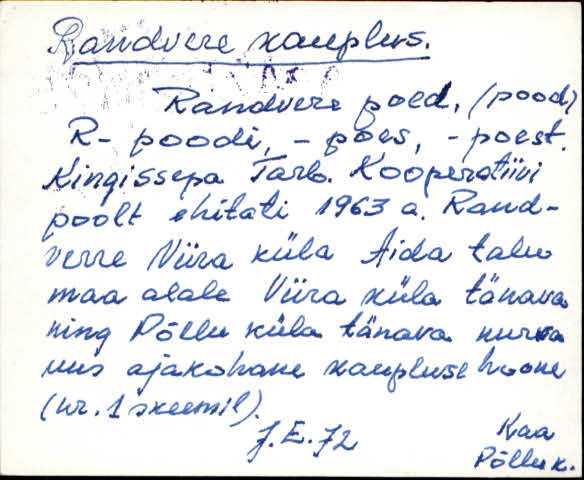 Randvere kauplus.
Randvere poed, (pood)
R- poodi, - poes, - poest.
Kingissepa Tarb. Kooperatiivi
poolt ehitati 1963 a. Rand-
verre Viira küla Aida talu
maa alale Viira küla tänava
ning Põllu küla tänava nurka
uus ajakohane kaupluse hoone
(nr. 1 skeemil).
J.E. 72
Kaa
Põllu k.